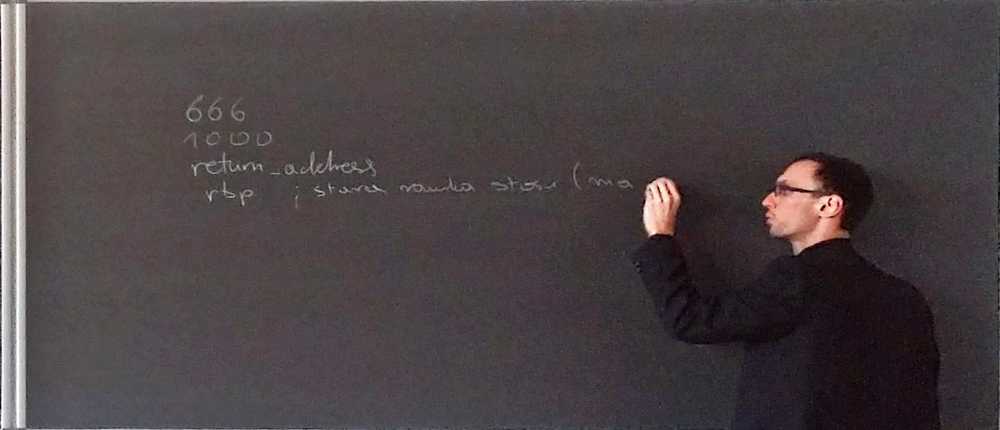 666
1000
return_address
rbp ; stara ramka stosu (ma